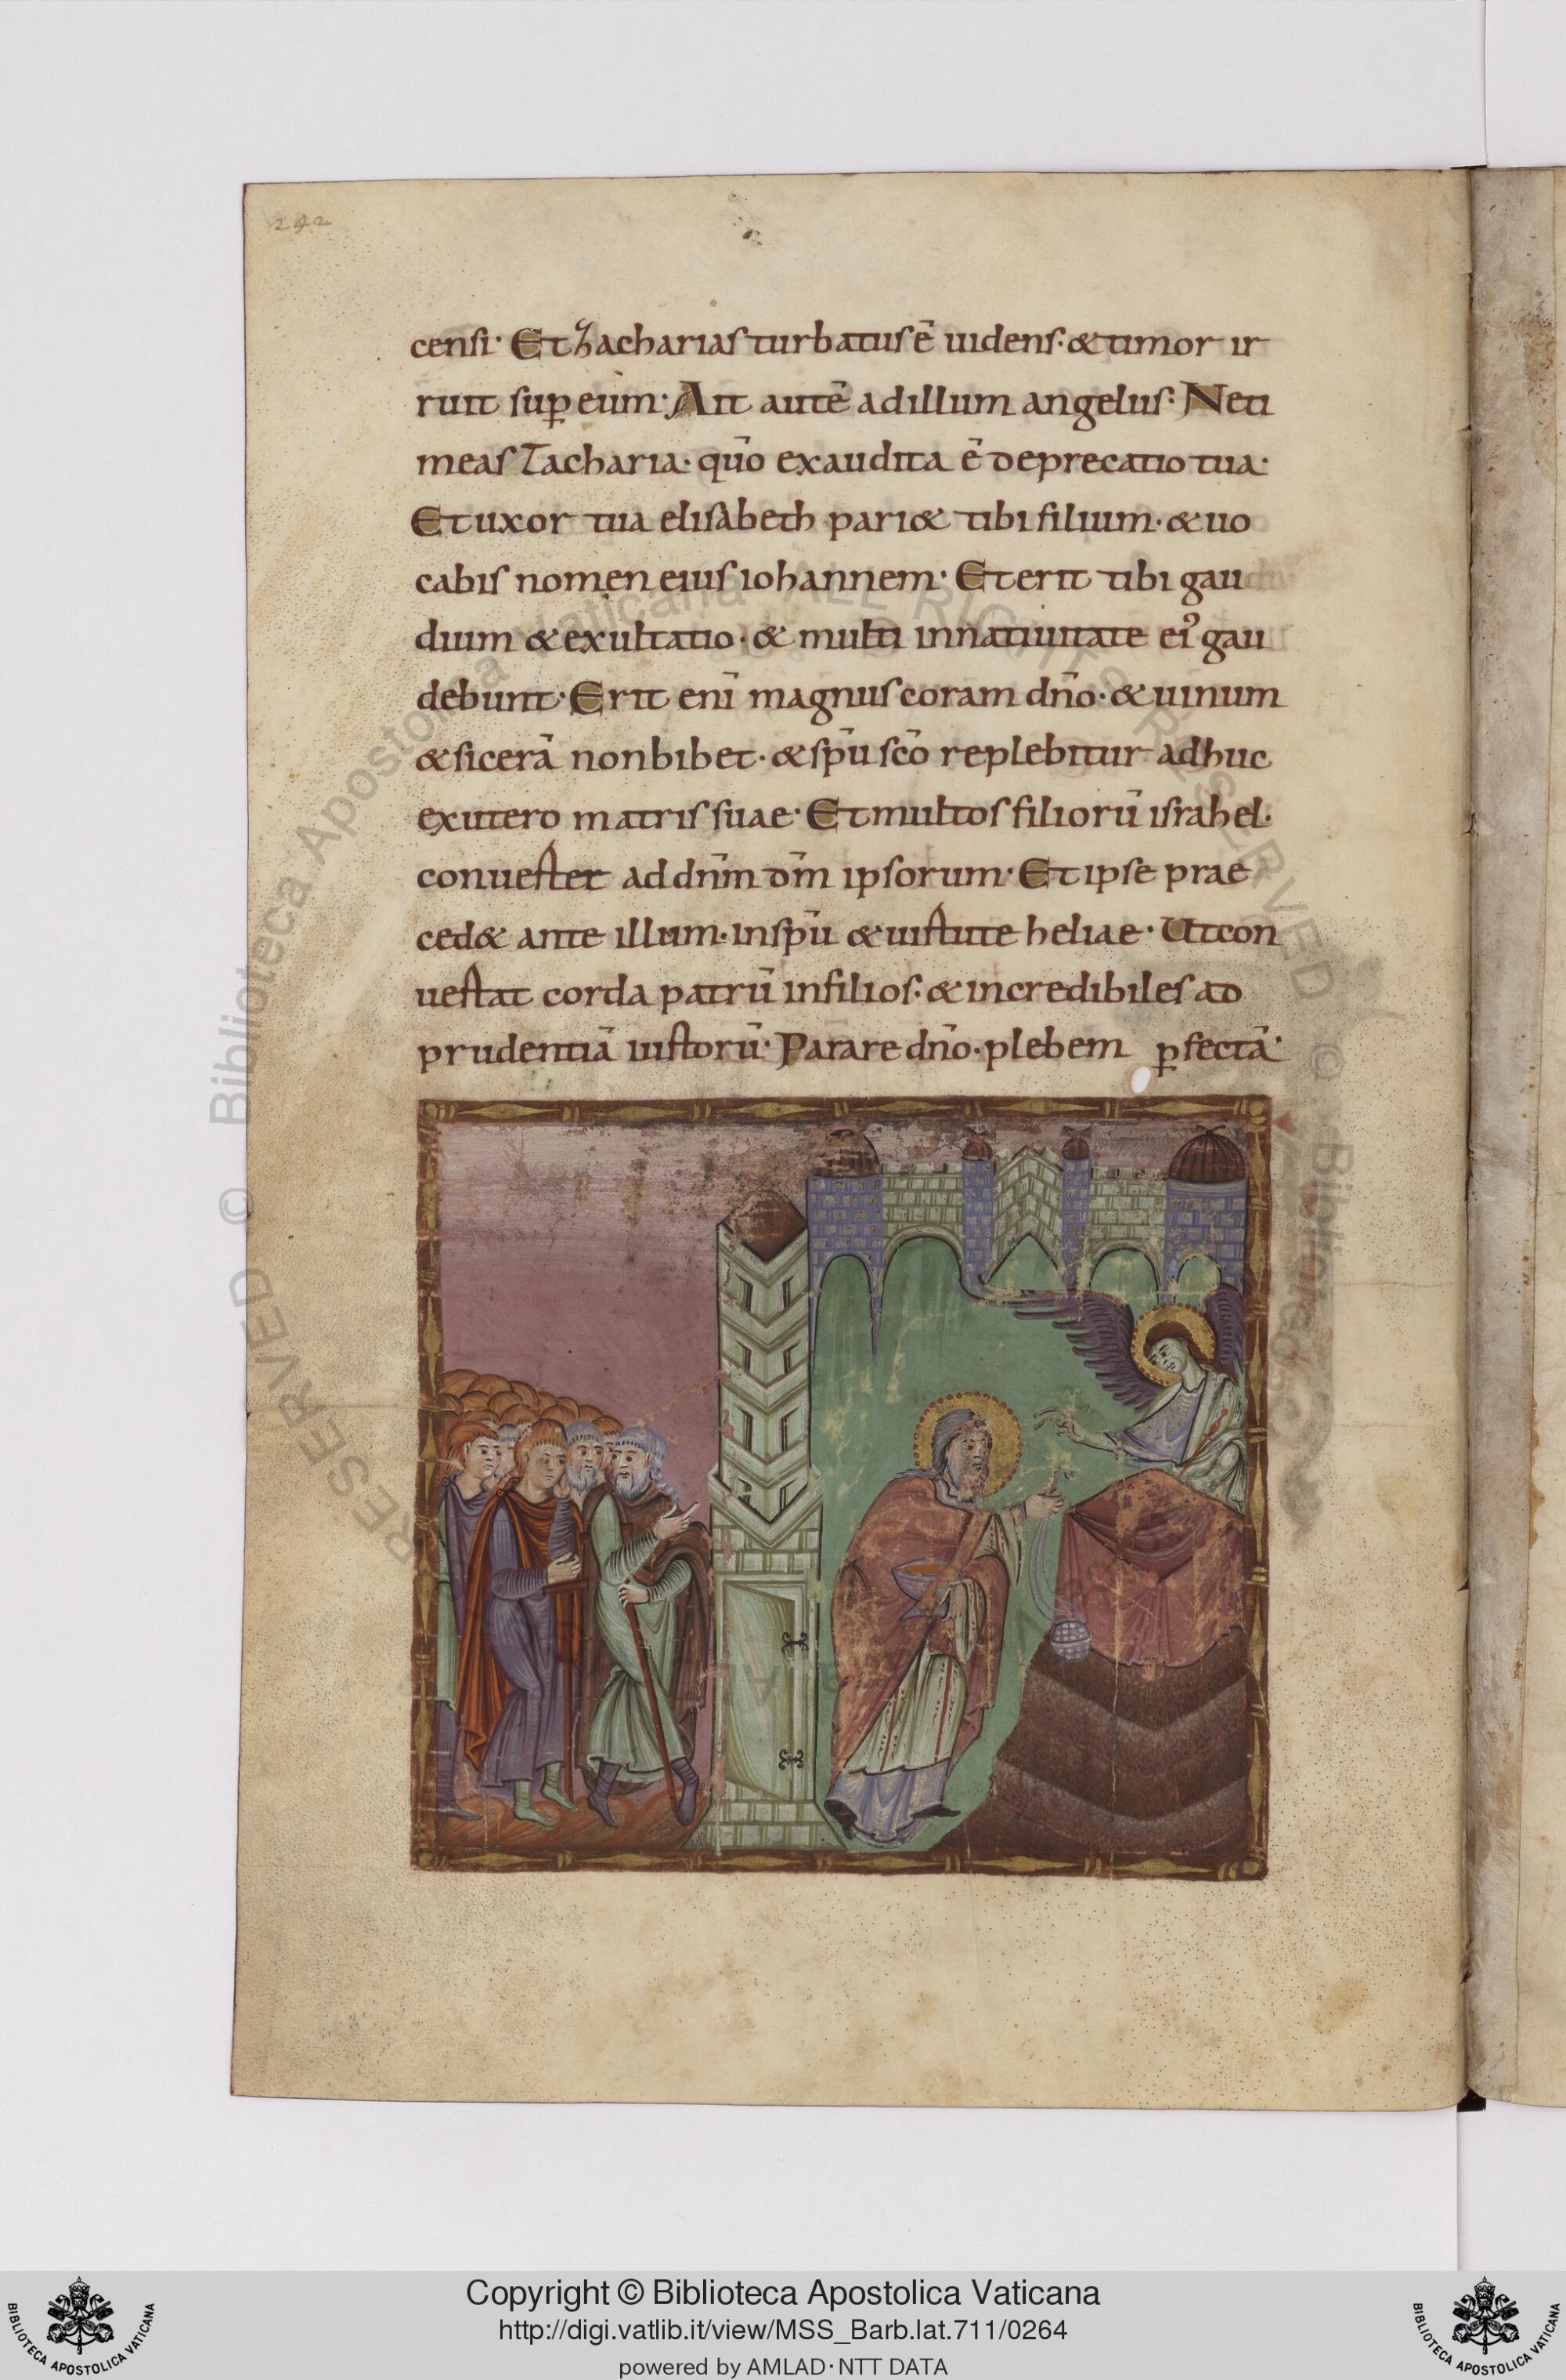 242
censi· Et Zacharias turbatus ē uidens· & timor ir
ruit sup̱ eum· Ait autē ad illum angelus· Ne ti
meas Zacharia· qūo exaudita ē deprecatio tua·
Et uxor tua elisabeth pari& tibi filium· & uo
cabis nomen eius iohannem· Et erit tibi gau
dium & exultatio· & multi in natiuitate ei᾿ gau
debunt· Erit enī magnus coram dn̄o· & uinum
& sicerā non bibet· & sp̄u sc̄o replebitur adhuc
ex utero matris suae· Et multos filiorū israhel·
conuerter ad dn̄m dm̄ ipsorum· Et ipse prae
ced& ante illum· in sp̄u & uirtute heliae· Ut con
uertat corda patrū in filios· & incredibiles ad
prudentiā iustorū· Parare dn̄o· plebem p̱fectā·
© Biblioteca Apostolica Vaticana ALL RIGHTS RESERVED
© Biblioteca
RESERVED
Copyright © Biblioteca Apostolica Vaticana
http://digi.vatlib.it/view/MSS_Barb.lat.711/0264
powered by AMLAD·NTT DATA
BIBLIOTECA APOSTOLICA VATICANA
BIBLIOTECA APOSTOLICA VATICANA